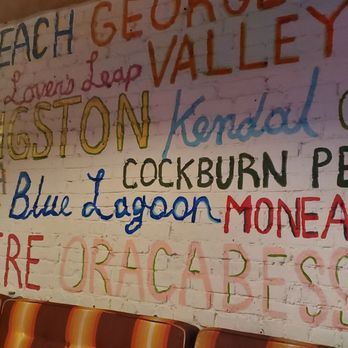 EACH GEORGE
Lover's Leap VALLEY
NGSTON Kendal
COCKBURN PE
Blue Lagoon MONEA
RE ORACABESS